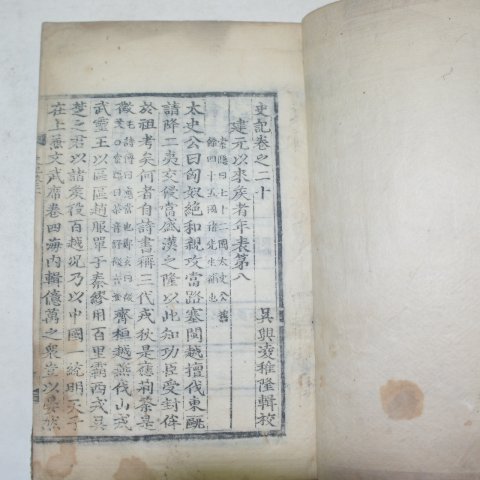 史記卷之二十
吳興凌稚隆輯校
建元以來侯者年表第八
索隱曰七十二國太史公舊
餘四十五國褚先生補也
太史公曰匈奴絶和親攻當路塞閩越擅伐東甌
請降二夷交侵當盛漢之隆以此知功臣受封侔
於祖考矣何者自詩書稱三代戎狄是膺荊荼是
徵
齊桓越燕伐山戎
武靈王以區區趙服單于秦繆用百里霸西戎吳
楚之君以諸侯役百越況乃以中國一統明天子
在上兼文武席卷四海內輯億萬之衆豈以晏然